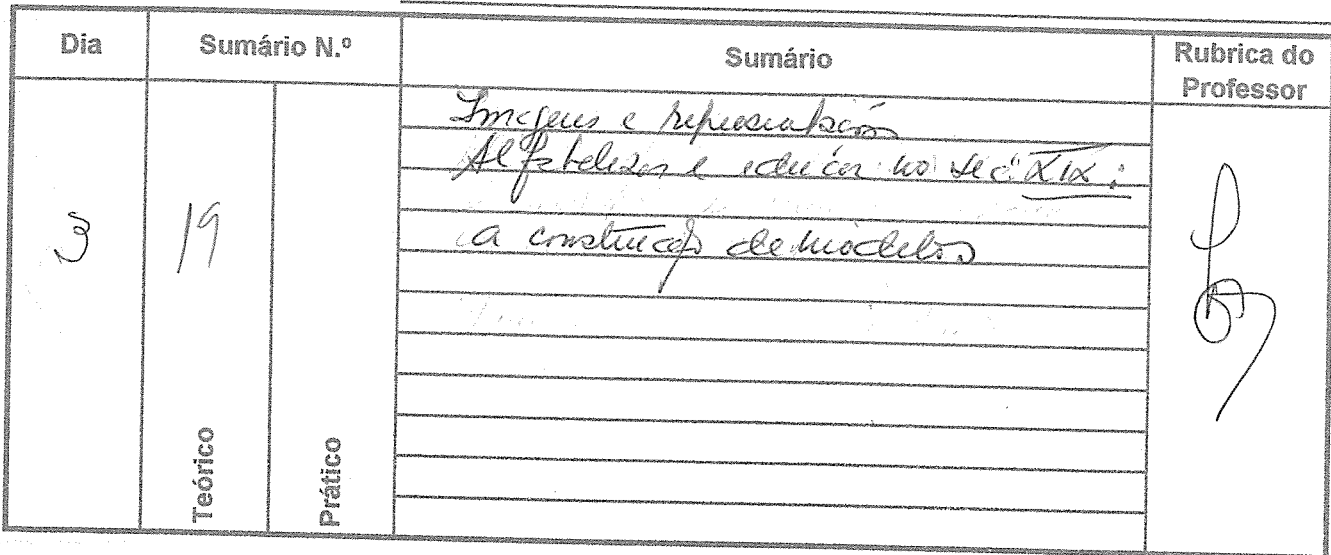 Dia Sumário N.º Sumário Rubrica do Professor
Imagens e representações
Alfabetizar e educar no séc. XIX:
3 19 a construção de modelos
Teórico Prático